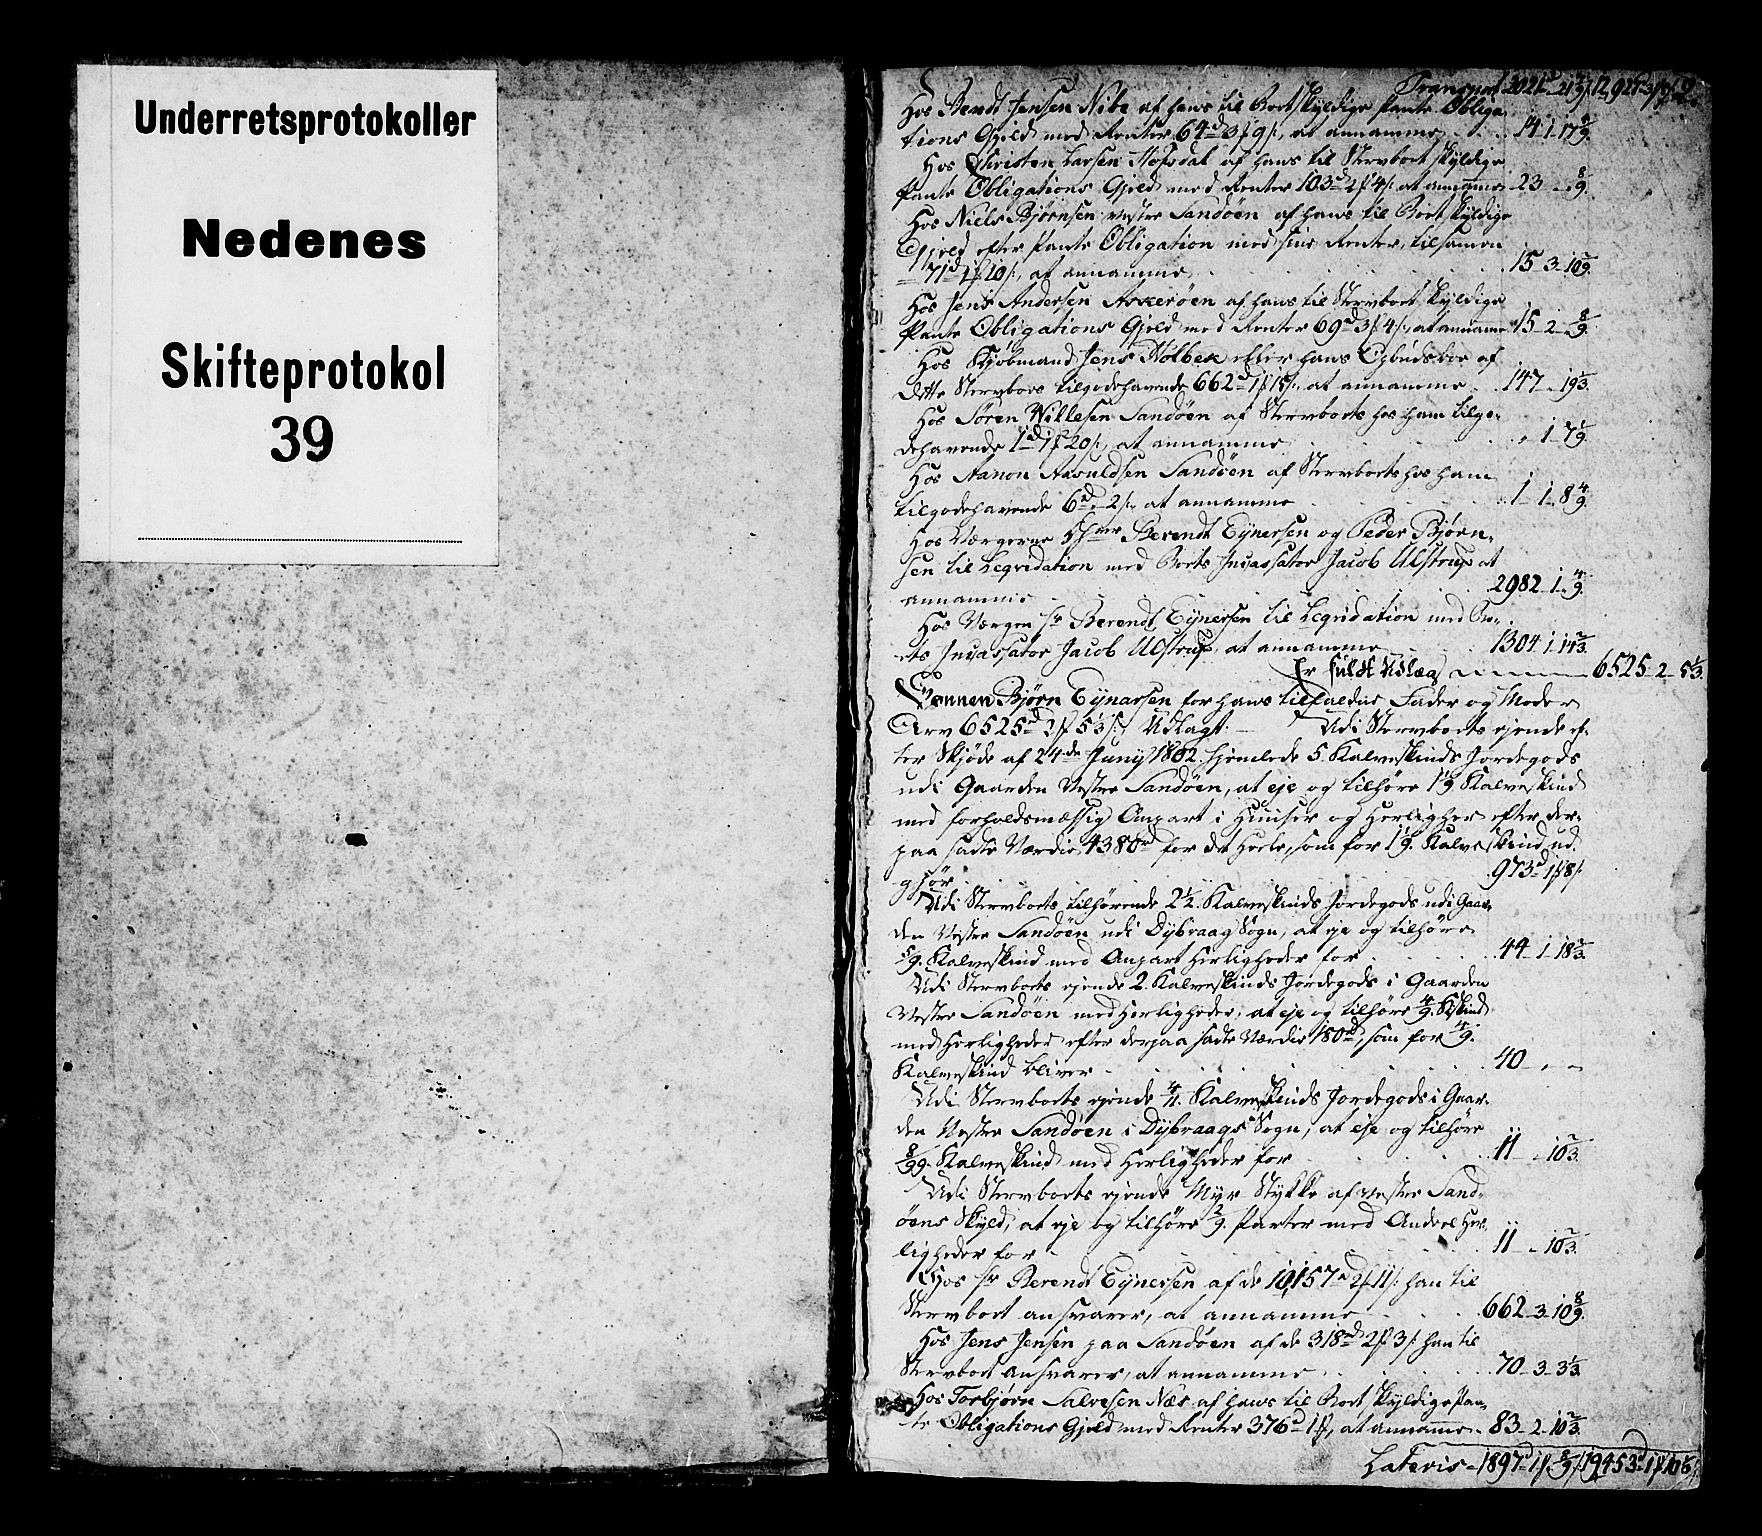 Underretsprotokoller
Nedenes
Skifteprotokol
39
Transport 2021
Hos Berndt Jensen Nibe af hans til Boet skyldige Pante Obliga-
tions Gjeld med Renter 64d 3f 9s, at annamme 14 1 17 8/9
Hos Christen Larsen Hofsdal af hans til Stervboet skyldige
Pante Obligations Gjeld med Renter 103d 2f 4s at annamme 23 - 8/9
Hos Niels Bjørnsen vestre Sandøen af hans til Boet skyldige
Gjeld efter Pante Obligation med sine Renter, tilsamen
71d 1f 10s, at annamme 15 3 10 8/9
Hos Jens Andersen Askerøen af hans til Stervboet skyldige
Pante Obligations Gjeld med Renter 69d 3f 4s, at annamme 15 2 8/9
Hos Kjøbmand Jens Holbek eller hans Opbudsboe af
dette Stervboes tilgodehavende 662d 1f 15s, at annamme 147 - 19 1/3
Hos Søren Nillesen Sandøen af Stervboets hos ham tilgo-
dehavende 1d 1f 20s, at annamme - 1 7 1/9
Hos Aanon Aasuldsen Sandøen af Stervboets hos ham
tilgodehavende 6d - 2s, at annamme 1 1 8 4/9
Hos Værgerne Hrer Berendt Eynersen og Peder Bjørn-
sen til Leqvidation med Boets Incassator Jacob Ulstrup at
annamme 2982 1 4/9
Hos Værgen Sr Berendt Eynersen til Leqvidation med Bo-
ets Incassator Jacob Ulstrup, at annamme 1304 1 14 2/3
Er fuldt Udlæg 6525 2 5 1/3
Sønnen Bjørn Eynarsen for hans tilfaldne Fader og Moder
Arv 6525d 2f 5 1/3s Udlagt. Udi Stervboets ejende ef-
ter Skjøde af 24de Junij 1802 hjemlede 5 Kalveskinds Jordegods
udi Gaarden Vestre Sandøen, at eje og tilhøre 1 1/9 Kalveskind
med forholdsmæssig Anpart i Huuser og Herligheder efter der-
paa sadte Værdie 4380rd for det Heele, som for 1 1/9 Kalveskind ud-
gjør 973d 1f 8s
Udi Stervboets tilhørende 2 1/2 Kalveskinds Jordegods udi Gaar-
den Vestre Sandøen udi Dybvaag Sogn, at eje og tilhøre
5/9 Kalveskind med Anpart Herligheder for 44 1 18 2/3
Udi Stervboets ejende 2 Kalveskinds Jordegods i Gaarden
Vestre Sandøen med Herligheder, at eje og tilhøre 4/9 Kskind
med Herligheder efter derpaa sadte Værdie 180rd, som for 4/9
Kalveskind bliver 40 - -
Udi Stervboets ejende 4/11 Kalveskinds Jordegods i Gaar-
den Vestre Sandøen i Dybvaags Sogn, at eje og tilhøre
8/99 Kalveskind med Herligheder for 11 - 10 2/3
Udi Stervboets ejende Myr Stykke af Vestre Sand-
øens Skyld, at eje og tilhøre 2/9 Parter med Andeel Her-
ligheder for 11 - 10 2/3
Hos Sr Berendt Eynersen af de 10,157d 2f 11s han til
Stervboet ansvarer, at annamme 662 3 10 8/9
Hos Jens Jensen paa Sandøen af de 318rd 2f 3s han til
Stervboet ansvarer, at annamme 70 3 3 1/3
Hos Torbjørn Salvesen Næs af hans til Boet skyldige Pan-
te Obligations Gjeld med Renter 376d 1f, at annamme 83 2 10 2/3
Lateris 1897d 1f 8/9s 19453d 1f